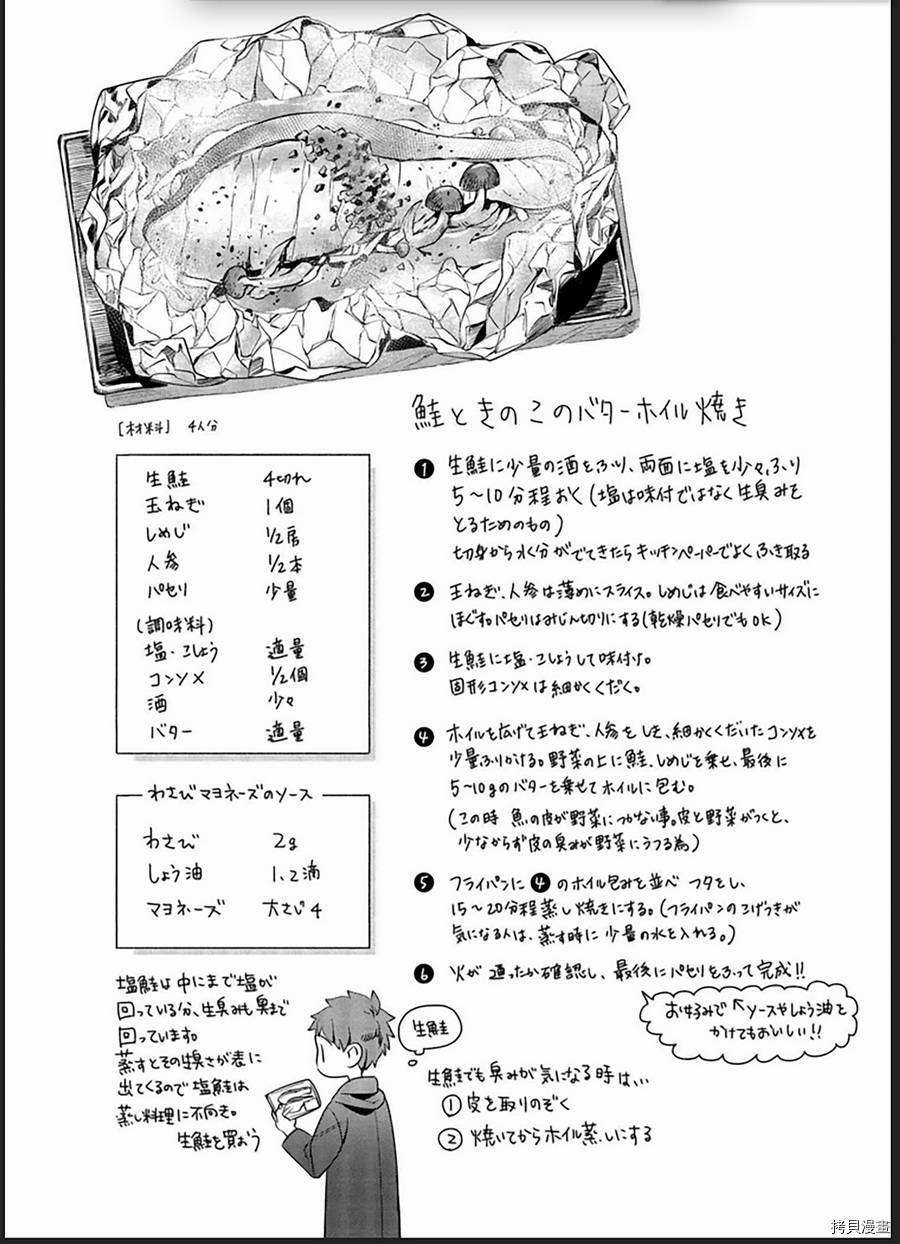 鮭ときのこのバターホイル焼き
[材料] 4人分
生鮭 4切れ
玉ねぎ 1個
しめじ 1/2房
人参 1/2本
パセリ 少量
(調味料)
塩・こしょう 適量
コンソメ 1/2個
酒 少々
バター 適量
わさびマヨネーズのソース
わさび 2g
しょう油 1、2滴
マヨネーズ 大さじ4
❶ 生鮭に少量の酒をふり、両面に塩を少々ふり
5〜10分程おく(塩は味付ではなく生臭みを
とるためのもの)
切身から水分がでてきたらキッチンペーパーでよくふき取る
❷ 玉ねぎ、人参は薄めにスライス。しめじは食べやすいサイズに
ほぐす。パセリはみじん切りにする(乾燥パセリでもOK)
❸ 生鮭に塩・こしょうして味付け。
固形コンソメは細かくくだく。
❹ ホイルを広げて玉ねぎ、人参をしき、細かくくだいたコンソメを
少量ふりかける。野菜の上に鮭、しめじを乗せ、最後に
5〜10gのバターを乗せてホイルに包む。
(この時 魚の皮が野菜につかない事。皮と野菜がつくと、
少なからず皮の臭みが野菜にうつる為)
❺ フライパンに❹のホイル包みを並べ フタをし、
15〜20分程蒸し焼きにする。(フライパンのこげつきが
気になる人は、蒸す時に少量の水を入れる。)
❻ 火が通ったか確認し、最後にパセリをふって完成!!
お好みで←ソースやしょう油を
かけてもおいしい!!
塩鮭は中にまで塩が
回っている分、生臭みも奥まで
回っています。
蒸すとその生臭さが表に
出てくるので塩鮭は
蒸し料理に不向き。
生鮭を買おう
生鮭
生鮭でも臭みが気になる時は、、、
① 皮を取りのぞく
② 焼いてからホイル蒸しにする
拷貝漫畫